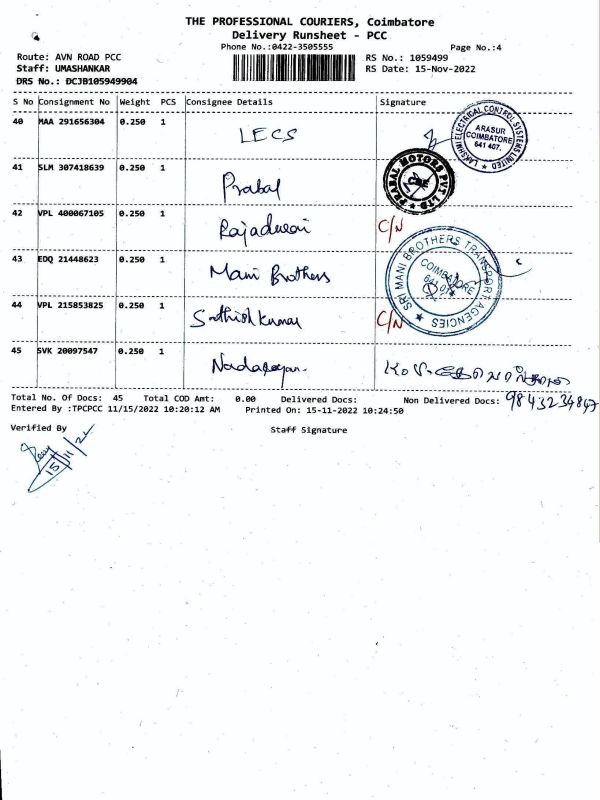 THE PROFESSIONAL COURIERS, Coimbatore
Delivery Runsheet - PCC
Phone No.:0422-3505555
Page No.:4
Route: AVN ROAD PCC
RS No.: 1059499
Staff: UMASHANKAR
RS Date: 15-Nov-2022
DRS No.: DCJB105949904
S No Consignment No Weight PCS Consignee Details Signature
40 MAA 291656304 0.250 1 LECS
LAKSHMI ELECTRICAL CONTROL SYSTEMS LIMITED
ARASUR
COIMBATORE
641 407.
41 SLM 307418639 0.250 1 Prabal
PRABAL MOTORS PVT LTD
CBE
42 VPL 400067105 0.250 1 Rajadurai C/N
43 EDQ 21448623 0.250 1 Mani Brothers
SRI MANI BROTHERS TRANSPORT AGENCIES
COIMBATORE
44 VPL 215853825 0.250 1 Sathish kumar C/N
45 SVK 20097547 0.250 1
Total No. Of Docs: 45 Total COD Amt: 0.00 Delivered Docs: Non Delivered Docs: 9843234847
Entered By :TPCPCC 11/15/2022 10:20:12 AM Printed On: 15-11-2022 10:24:50
Verified By
Staff Signature
15/11/22